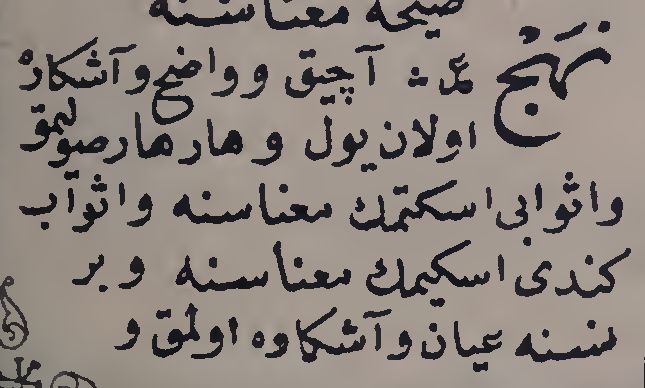 صيحه معناسنه
نَهْج ع ث آچيق و واضح و آشكاره
اولان يول و هار هار صولمق
و اثوابى اسكتمك معناسنه و اثواب
كندى اسكيمك معناسنه و بر
نسنه عيان و آشكاره اولمق و